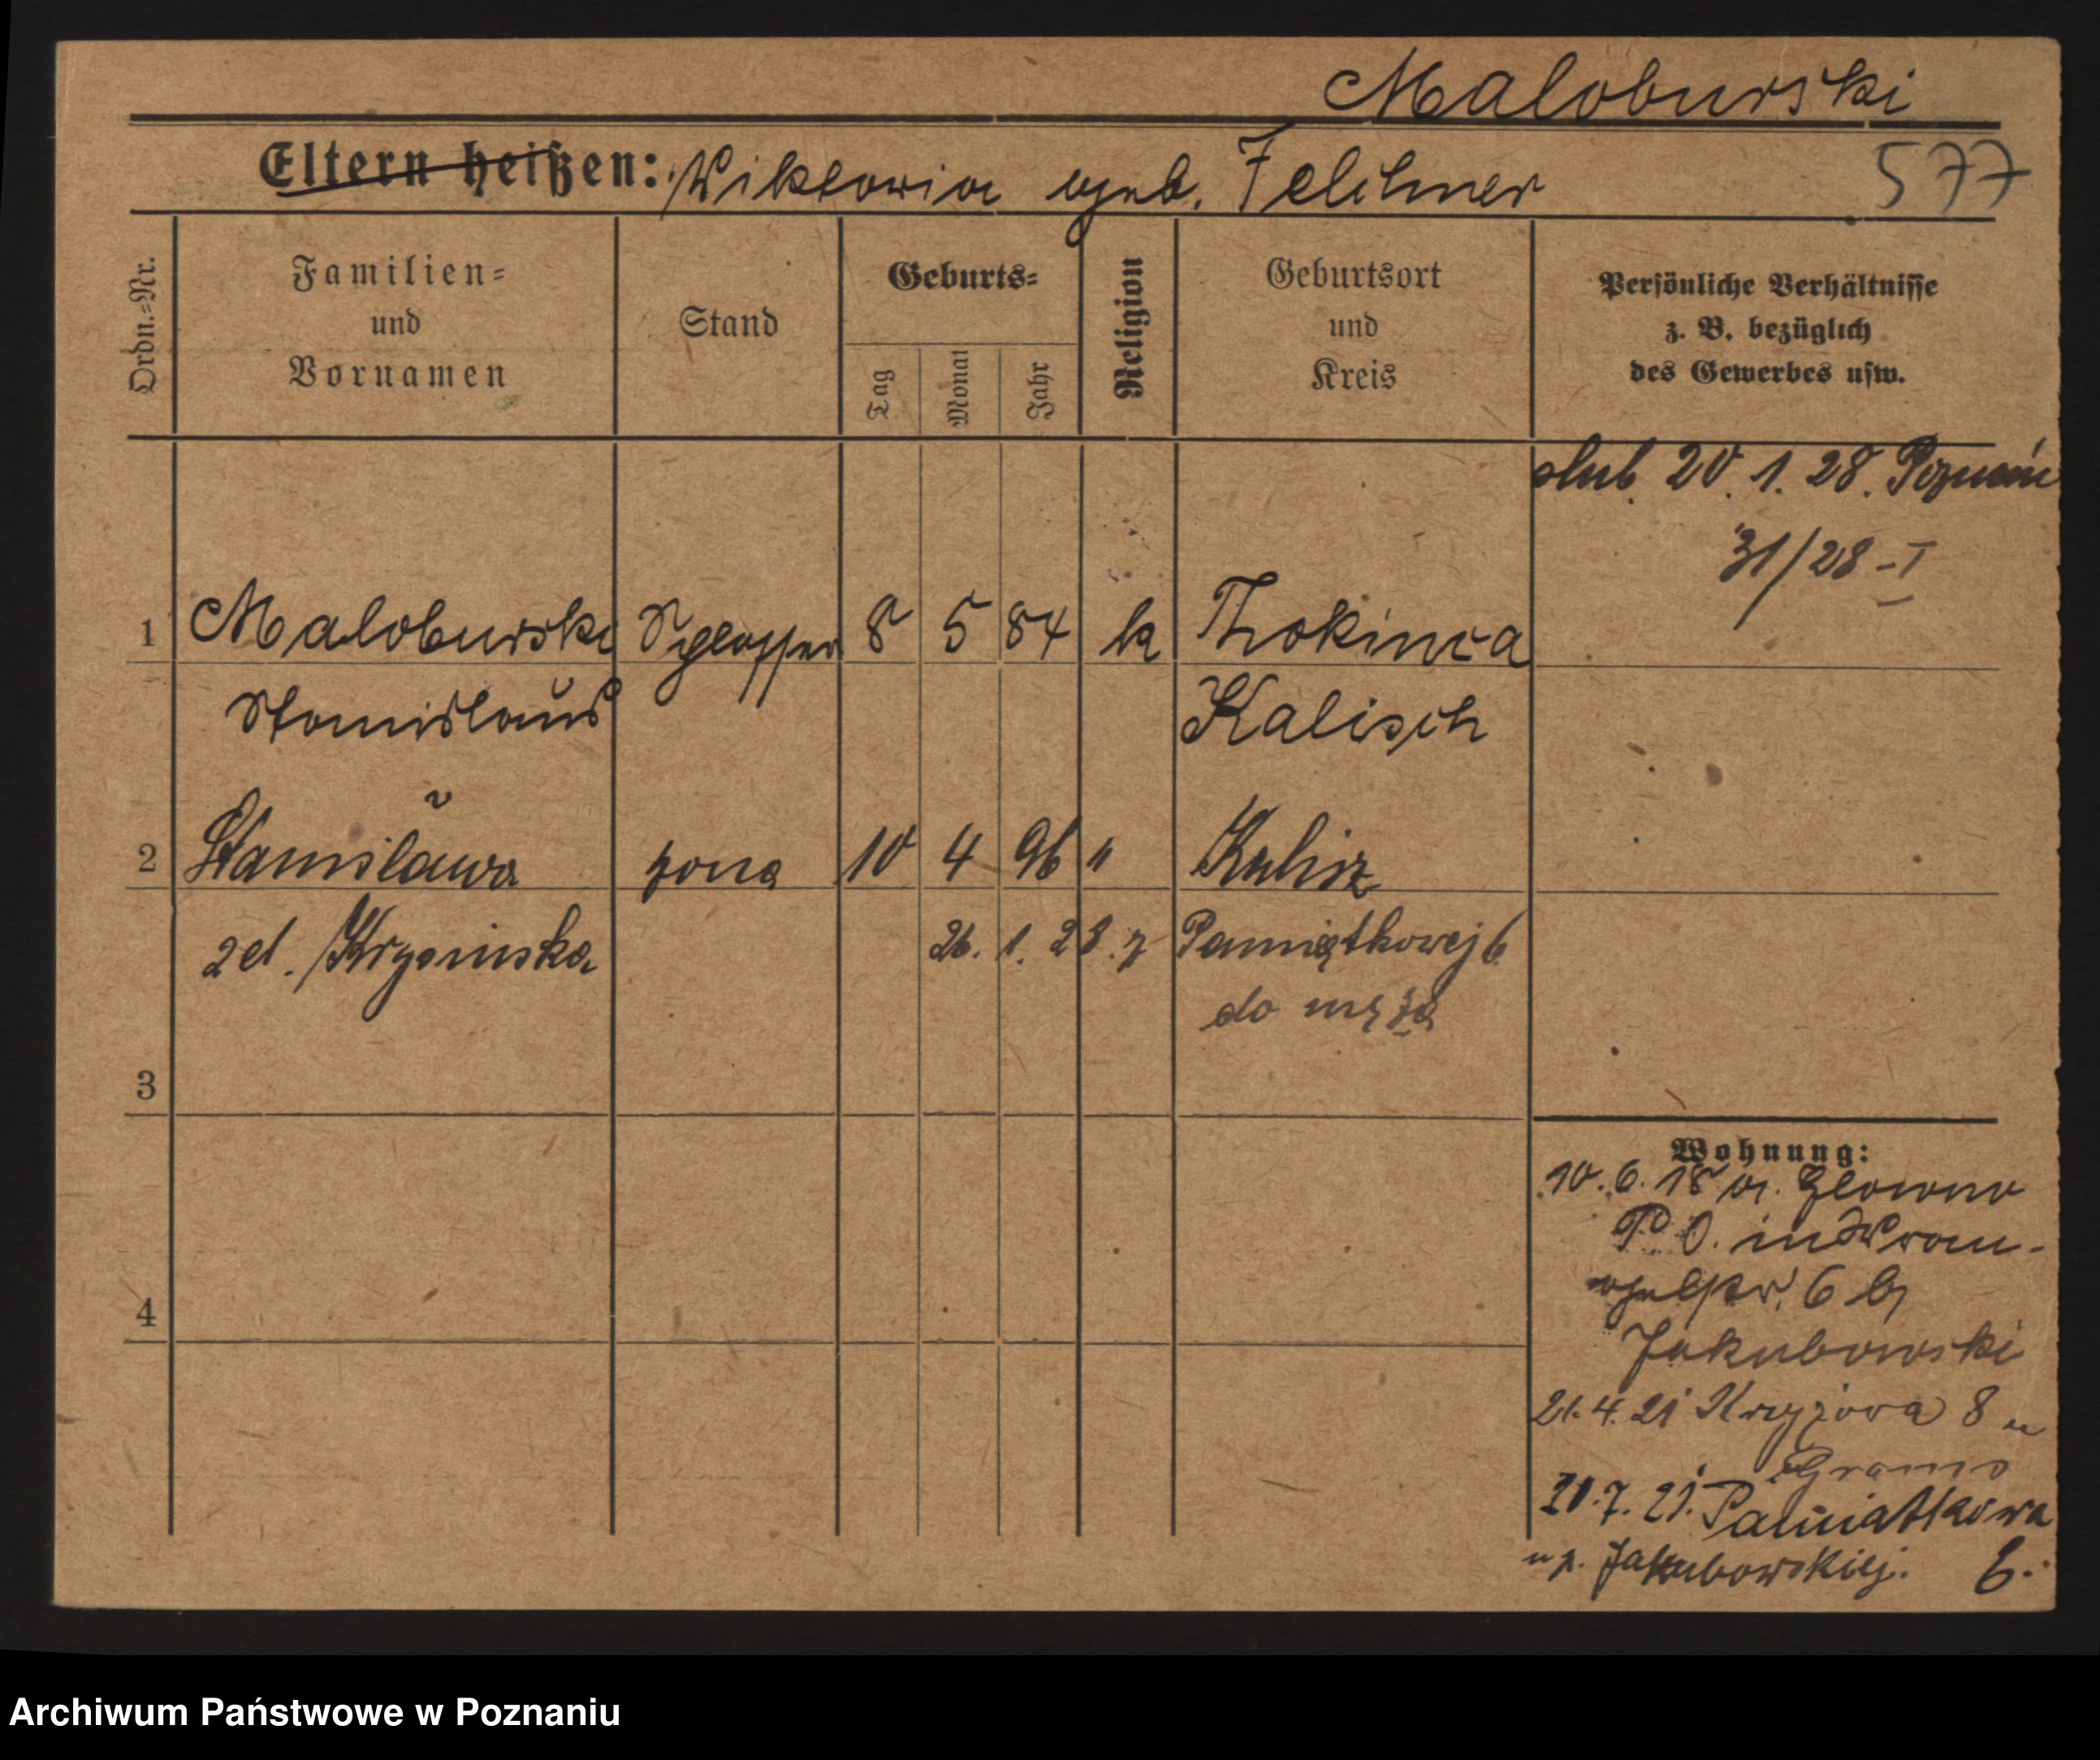 Maloburski
Eltern heißen: Wiktoria geb. Felchner
577
Ordn.=Nr.
Familien=
und
Vornamen
Stand
Geburts=
Tag
Monat
Jahr
Religion
Geburtsort
und
Kreis
Persönliche Verhältnisse
z. B. bezüglich
des Gewerbes usw.
slub. 20. 1. 28. Poznań
31/28 - I
1 Maloburski Schlosser 8 5 84 k Thokinca
Stanislaus Kalisch
2 Stanisława żona 10 4 96 " Kalisz
zd. Krysinska 26. 1. 28. z Pamiątkowej 6
do męża
3
4
Wohnung:
10. 6. 18 a. Glowno
P. O. 6 b/
Jakubowski
21. 4. 21 Krzyżowa 8 u
21. 7. 21. Pamiatkowa
u p. Jakubowskiej. 6.
Archiwum Państwowe w Poznaniu